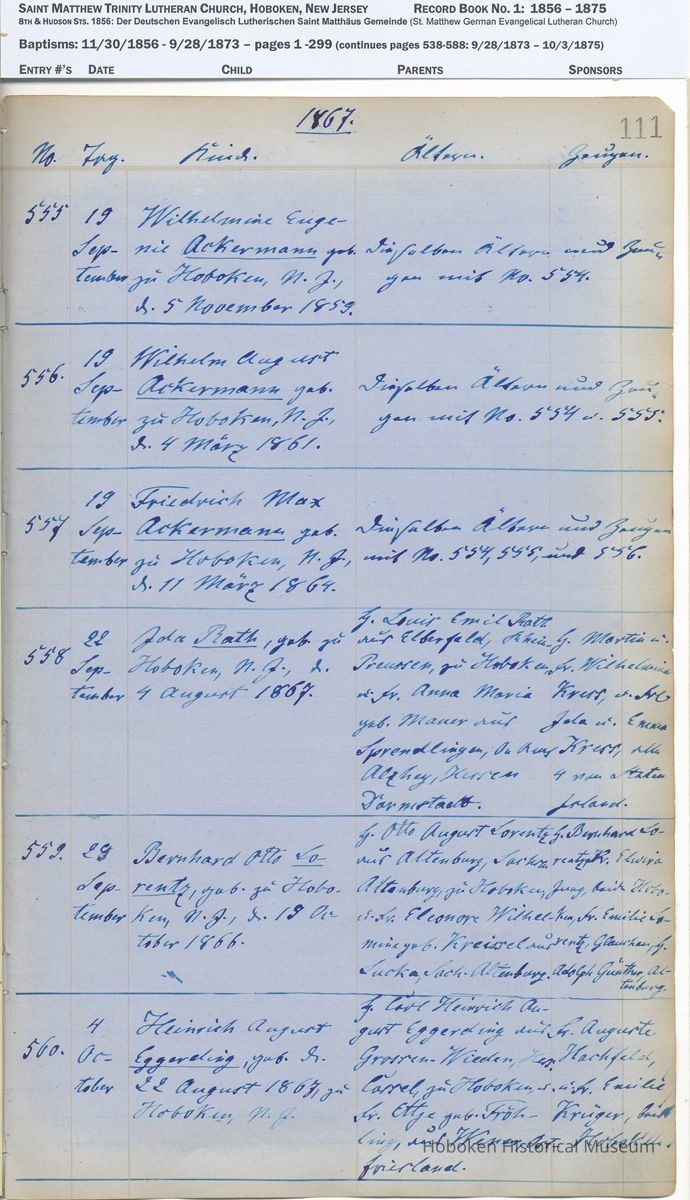 SAINT MATTHEW TRINITY LUTHERAN CHURCH, HOBOKEN, NEW JERSEY RECORD BOOK NO. 1: 1856 – 1875
8TH & HUDSON STS. 1856: Der Deutschen Evangelisch Lutherischen Saint Matthäus Gemeinde (St. Matthew German Evangelical Lutheran Church)
Baptisms: 11/30/1856 - 9/28/1873 – pages 1 -299 (continues pages 538-588: 9/28/1873 – 10/3/1875)
ENTRY #'S DATE CHILD PARENTS SPONSORS
1867. 111
No. Tag. Kind. Ältern. Zeugen.
555 19 Wilhelmine Euge-
Sep- nie Ackermann geb. Dieselben Ältern und Zeu-
tember zu Hoboken, N. J., gen mit No. 554.
d. 5 November 1859.
19 Wilhelm August
556. Sep- Ackermann geb. Dieselben Ältern und Zeu-
tember zu Hoboken, N. J., gen mit No. 554 u. 555.
d. 4 März 1861.
19 Friedrich Max
557 Sep- Ackermann geb. Dieselben Ältern und Zeugen
tember zu Hoboken, N. J., mit No. 554, 555, und 556.
d. 11 März 1864.
558 22 Sep- tember
Ida Rath, geb. zu
Hoboken, N. J., d.
4 August 1867.
H. Louis Emil Rath
aus Elberfeld, Rhein-
Preussen, zu Hoboken,
u. Fr. Anna Maria
geb. Mauer aus
Sprendlingen,
Alzhey, Hessen
Darmstadt.
H. Martin u.
Fr. Wilhelmine
Kress, u. Frl.
Ida u. Emma
Kress, alle
4 von Staten
Island.
559. 29 Sep- tember
Bernhard Otto Lo-
rentz, geb. zu Hobo-
ken, N. J., d. 19 Oc-
tober 1866.
H. Otto August Lorentz
aus Altenburg, Sachsen
Altenburg, zu Hoboken,
u. Fr. Eleonore Wilhel-
mine geb. Kreissel aus
Lucka, Sach. Altenburg.
H. Bernhard Lo-
rentz, Fr. Elwira
Jung, beide Hobo-
ken, Fr. Emilie Lo-
rentz, Glauchau, H.
Adolph Günther, Al-
tenburg.
560. 4 Oc- tober
Heinrich August
Eggerding, geb. d.
22 August 1867, zu
Hoboken, N. J.
H. Carl Heinrich Au-
gust Eggerding aus
Grossen-Wieden, Hess.
Cassel, zu Hoboken, u.
Fr. Ettje geb. Fröh-
ling, aus Weener,
friesland.
Fr. Auguste
Hachfeld,
u. Fr. Emilie
Krüger, beide
Hoboken
Hoboken Historical Museum